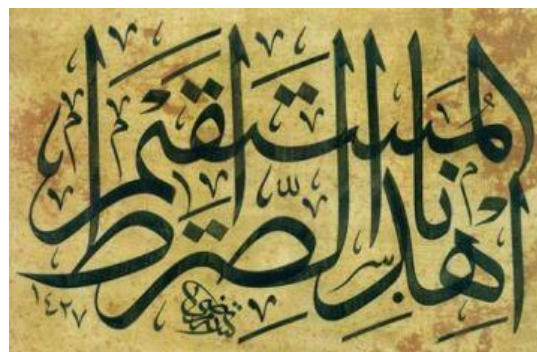 اهْدِنَا الصِّرَٰطَ
الْمُسْتَقِيمَ
١٤٢٧